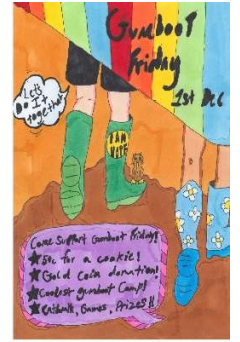 Gumboot
Friday
1st Dec
Let's
Do It
together
I AM
Come Support Gumboot Friday!
★ 50c for a cookie!
★ Gold Coin donation!
★ Coolest gumboot Comp!
★ Catwalk, Games, Prizes!!